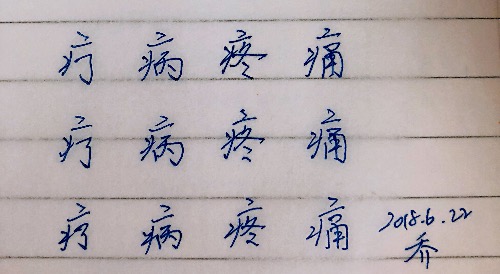 疗 病 疼 痛
疗 病 疼 痛
疗 病 疼 痛 2018.6.22
乔